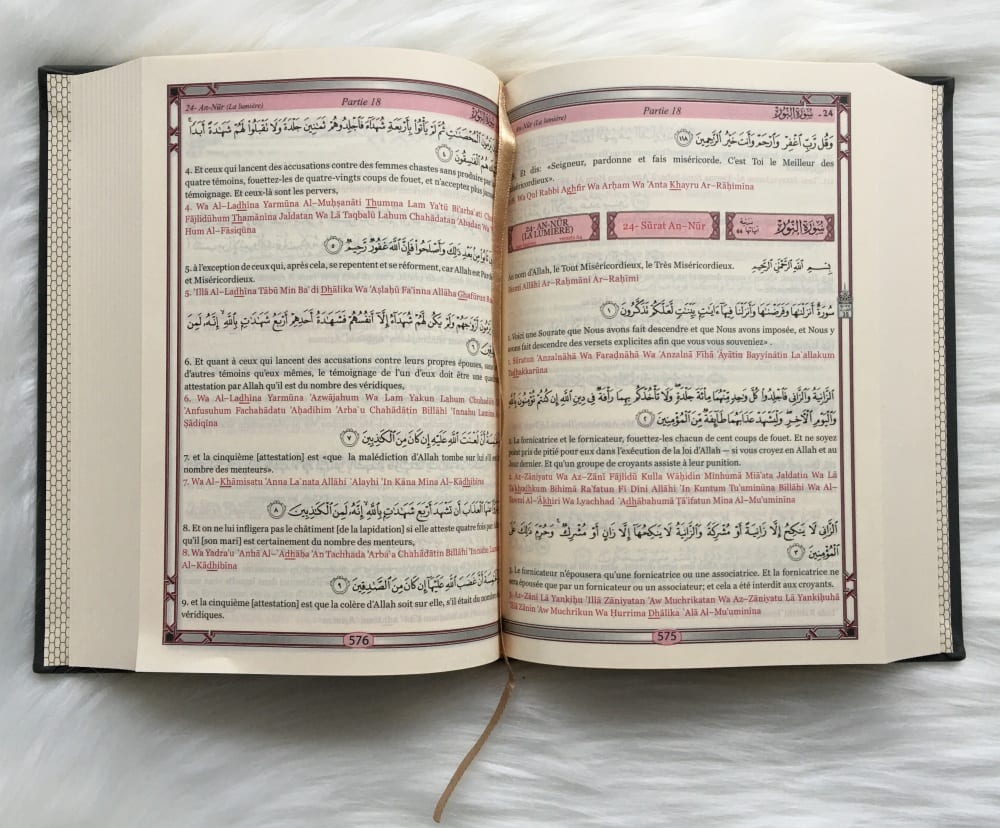 An-Nûr (La lumière) Partie 18 24 - سُورَةُ النُّورِ
وَقُل رَّبِّ ٱغْفِرْ وَٱرْحَمْ وَأَنتَ خَيْرُ ٱلرَّٰحِمِينَ ١١٨
Et dis: «Seigneur, pardonne et fais miséricorde. C'est Toi le Meilleur des
miséricordieux».
Wa Qul Rabbi Aghfir Wa Arĥam Wa 'Anta Khayru Ar-Rāĥimīna
24- AN-NÛR 24- Sūrat An-Nūr سُورَةُ النُّورِ
(LA LUMIERE)
nom d'Allah, le Tout Miséricordieux, le Très Miséricordieux. بِسْمِ ٱللَّهِ ٱلرَّحْمَٰنِ ٱلرَّحِيمِ
Allāhi Ar-Raĥmāni Ar-Raĥīmi
سُورَةٌ أَنزَلْنَٰهَا وَفَرَضْنَٰهَا وَأَنزَلْنَا فِيهَآ ءَايَٰتٍۭ بَيِّنَٰتٍ لَّعَلَّكُمْ تَذَكَّرُونَ ١
1. Voici une Sourate que Nous avons fait descendre et que Nous avons imposée, et Nous y
avons fait descendre des versets explicites afin que vous vous souveniez» .
1. Sūratun 'Anzalnāhā Wa Faradnāhā Wa 'Anzalnā Fīhā 'Āyātin Bayyinātin La`allakum
Tadhakkarūna
ٱلزَّانِيَةُ وَٱلزَّانِى فَٱجْلِدُوا۟ كُلَّ وَٰحِدٍ مِّنْهُمَا مِا۟ئَةَ جَلْدَةٍ وَلَا تَأْخُذْكُم بِهِمَا رَأْفَةٌ فِى دِينِ ٱللَّهِ إِن كُنتُمْ تُؤْمِنُونَ بِٱللَّهِ
وَٱلْيَوْمِ ٱلْءَاخِرِ وَلْيَشْهَدْ عَذَابَهُمَا طَآئِفَةٌ مِّنَ ٱلْمُؤْمِنِينَ ٢
2. La fornicatrice et le fornicateur, fouettez-les chacun de cent coups de fouet. Et ne soyez
point pris de pitié pour eux dans l'exécution de la loi d'Allah – si vous croyez en Allah et au
Jour dernier. Et qu'un groupe de croyants assiste à leur punition.
2. Az-Zāniyatu Wa Az-Zānī Fājlidū Kulla Wāĥidin Minhumā Miā'ata Jaldatin Wa Lā
Ta'khudhkum Bihimā Ra'fatun Fī Dīni Allāhi 'In Kuntum Tu'uminūna Billāhi Wa Al-
Yawmi Al-'Ākhiri Wa Lyachhad `Adhābahumā Ţā'ifatun Mina Al-Mu'uminīna
ٱلزَّانِى لَا يَنكِحُ إِلَّا زَانِيَةً أَوْ مُشْرِكَةً وَٱلزَّانِيَةُ لَا يَنكِحُهَآ إِلَّا زَانٍ أَوْ مُشْرِكٌ وَحُرِّمَ ذَٰلِكَ عَلَى
ٱلْمُؤْمِنِينَ ٣
3. Le fornicateur n'épousera qu'une fornicatrice ou une associatrice. Et la fornicatrice ne
sera épousée que par un fornicateur ou un associateur; et cela a été interdit aux croyants.
3. Az-Zānī Lā Yankiĥu 'Illā Zāniyatan 'Aw Muchrikatan Wa Az-Zāniyatu Lā Yankiĥuhā
'Illā Zānin 'Aw Muchrikun Wa Ĥurrima Dhālika `Alá Al-Mu'uminīna
575
24- An-Nûr (La lumière) Partie 18 سُورَةُ
يَرْمُونَ ٱلْمُحْصَنَٰتِ ثُمَّ لَمْ يَأْتُوا۟ بِأَرْبَعَةِ شُهَدَآءَ فَٱجْلِدُوهُمْ ثَمَٰنِينَ جَلْدَةً وَلَا تَقْبَلُوا۟ لَهُمْ شَهَٰدَةً أَبَدًا
هُمُ ٱلْفَٰسِقُونَ ٤
4. Et ceux qui lancent des accusations contre des femmes chastes sans produire
quatre témoins, fouettez-les de quatre-vingts coups de fouet, et n'acceptez plus
témoignage. Et ceux-là sont les pervers,
4. Wa Al-Ladhīna Yarmūna Al-Muĥşanāti Thumma Lam Ya'tū Bi'arba`ati
Fājlidūhum Thamānīna Jaldatan Wa Lā Taqbalū Lahum Chahādatan 'Abadan Wa
Hum Al-Fāsiqūna
مِنۢ بَعْدِ ذَٰلِكَ وَأَصْلَحُوا۟ فَإِنَّ ٱللَّهَ غَفُورٌ رَّحِيمٌ ٥
5. à l'exception de ceux qui, après cela, se repentent et se réforment, car Allah est
et Miséricordieux.
5. 'Illā Al-Ladhīna Tābū Min Ba`di Dhālika Wa 'Aşlaĥū Fa'inna Allāha Ghafūrun
يَرْمُونَ أَزْوَٰجَهُمْ وَلَمْ يَكُن لَّهُمْ شُهَدَآءُ إِلَّآ أَنفُسُهُمْ فَشَهَٰدَةُ أَحَدِهِمْ أَرْبَعُ شَهَٰدَٰتٍۭ بِٱللَّهِ إِنَّهُۥ لَمِنَ
٦
6. Et quant à ceux qui lancent des accusations contre leurs propres épouses,
d'autres témoins qu'eux mêmes, le témoignage de l'un d'eux doit être une
attestation par Allah qu'il est du nombre des véridiques,
6. Wa Al-Ladhīna Yarmūna 'Azwājahum Wa Lam Yakun Lahum
'Anfusuhum Fachahādatu 'Aĥadihim 'Arba`u Chahādātin Billāhi 'Innahu Lamina
Şādiqīna
أَنَّ لَعْنَتَ ٱللَّهِ عَلَيْهِ إِن كَانَ مِنَ ٱلْكَٰذِبِينَ ٧
7. et la cinquième [attestation] est «que la malédiction d'Allah tombe sur lui
nombre des menteurs».
7. Wa Al-Khāmisatu 'Anna La`nata Allāhi `Alayhi 'In Kāna Mina Al-Kādhibīna
ٱلْعَذَابَ أَن تَشْهَدَ أَرْبَعَ شَهَٰدَٰتٍۭ بِٱللَّهِ إِنَّهُۥ لَمِنَ ٱلْكَٰذِبِينَ ٨
8. Et on ne lui infligera pas le châtiment [de la lapidation] si elle atteste quatre fois
qu'il [son mari] est certainement du nombre des menteurs,
8. Wa Yadra'u `Anhā Al-`Adhāba 'An Tachhada 'Arba`a Chahādātin Billāhi 'Innahu
Al-Kādhibīna
أَنَّ غَضَبَ ٱللَّهِ عَلَيْهَآ إِن كَانَ مِنَ ٱلصَّٰدِقِينَ ٩
9. et la cinquième [attestation] est que la colère d'Allah soit sur elle, s'il était du nombre
véridiques.
576